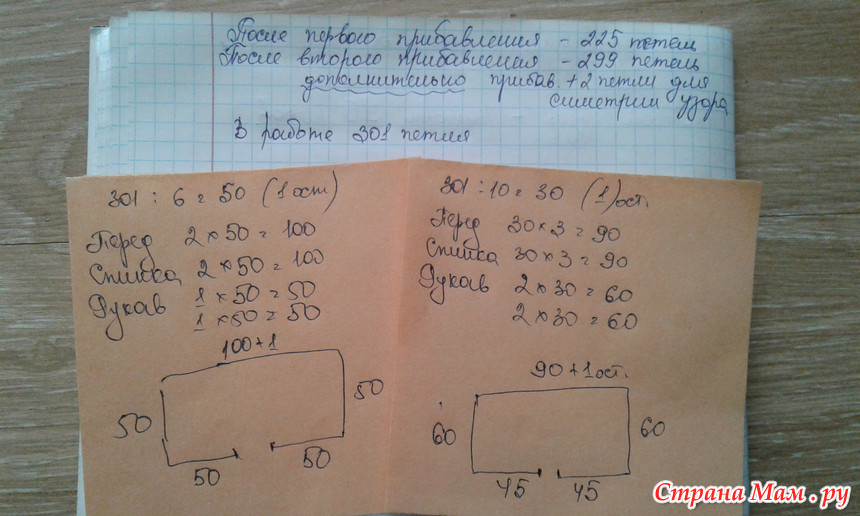 После первого прибавления - 225 петель
После второго прибавления - 299 петель
дополнительно прибав. +2 петли для
симетрии узора
В работе 301 петля
301 : 6 = 50 (1 ост)
Перед 2 × 50 = 100
Спинка 2 × 50 = 100
Рукав 1 × 50 = 50
1 × 50 = 50
100+1
50
50
50
50
301 ÷ 10 = 30 (1) ост.
Перед 30 × 3 = 90
Спинка 30 × 3 = 90
Рукав 2 × 30 = 60
2 × 30 = 60
90 + 1 ост.
60
60
45
45
Страна Мам.ру